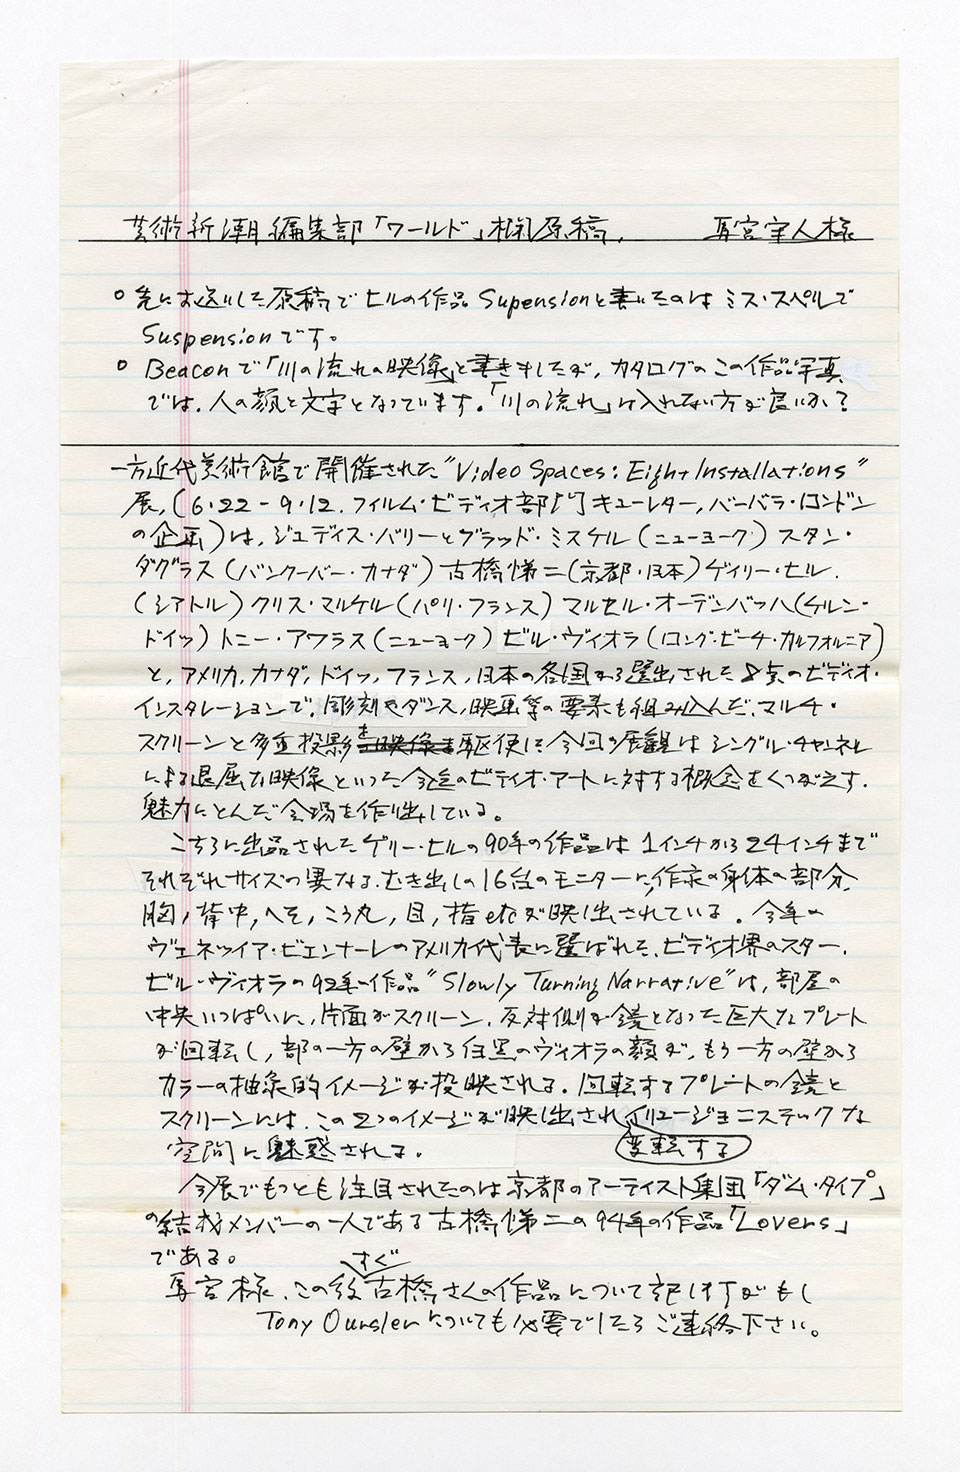 芸術新潮編集部「ワールド」欄原稿, 馬宮守人様
○ 先にお送りした原稿でヒルの作品 Supensionと書いたのは ミス・スペルで
Suspensionです。
○ Beaconで「川の流れの映像」と書きましたが, カタログのこの作品写真
では, 人の顔と文字となっています。「川の流れ」は入れない方が良いか?
一方近代美術館で開催された"Video Spaces: Eight Installations"
展, (6·22 - 9·12. フィルム・ビディオ部門キューレター, バーバラ・ロンドン
の企画)は, ジュディス・バリーとブラッド・ミスケル (ニューヨーク) スタン・
ダグラス (バンクーバー・カナダ) 古橋悌二 (京都・日本) ゲイリー・ヒル.
(シアトル) クリス・マルケル (パリ・フランス) マルセル・オーデンバッハ (ケルン-
ドイツ) トニー・アワラス (ニューヨーク) ビル・ヴィオラ (ロング・ビーチ・カルフォルニア)
と, アメリカ, カナダ, ドイツ, フランス, 日本の各国から選出された8点のビディオ・
インスタレーションで, 彫刻やダンス, 映画等の要素も組み込んだ, マルチ・
スクリーンと多重投影を駆使した今回の展観は シングル・チャンネル
による退屈な映像といった今迄のビディオ・アートに対する概念をくつがえす,
魅力にとんだ会場を作り出している。
こちらに出品されたゲリー・ヒルの90年の作品は 1インチから24インチまで
それぞれサイズの異なる, むき出しの16台のモニターに, 作家の身体の部分,
胸, 背中, へそ, こう丸, 目, 指etcが映し出されている. 今年の
ヴェネツィア・ビエンナーレのアメリカ代表に選ばれて, ビディオ界のスター,
ビル・ヴィオラの92年作品"Slowly Turning Narrative"は, 部屋の
中央いっぱいに, 片面がスクリーン, 反対側が鏡となった巨大なプレート
が回転し, 部の一方の壁から白黒のヴィオラの顔が, もう一方の壁から
カラーの抽象的イメージが投映される. 回転するプレートの鏡と
スクリーンには, この2つのイメージが映し出され イリュージョニスティックな
空間に魅惑される. 変転する
今展でもっとも注目されたのは京都のアーティスト集団「ダム・タイプ」
の結成メンバーの一人である古橋悌二の94年の作品「Lovers」
である。
馬宮様, この後すぐ古橋さんの作品について記しますがもし
Tony Ourslerについても必要でしたら ご連絡下さい。